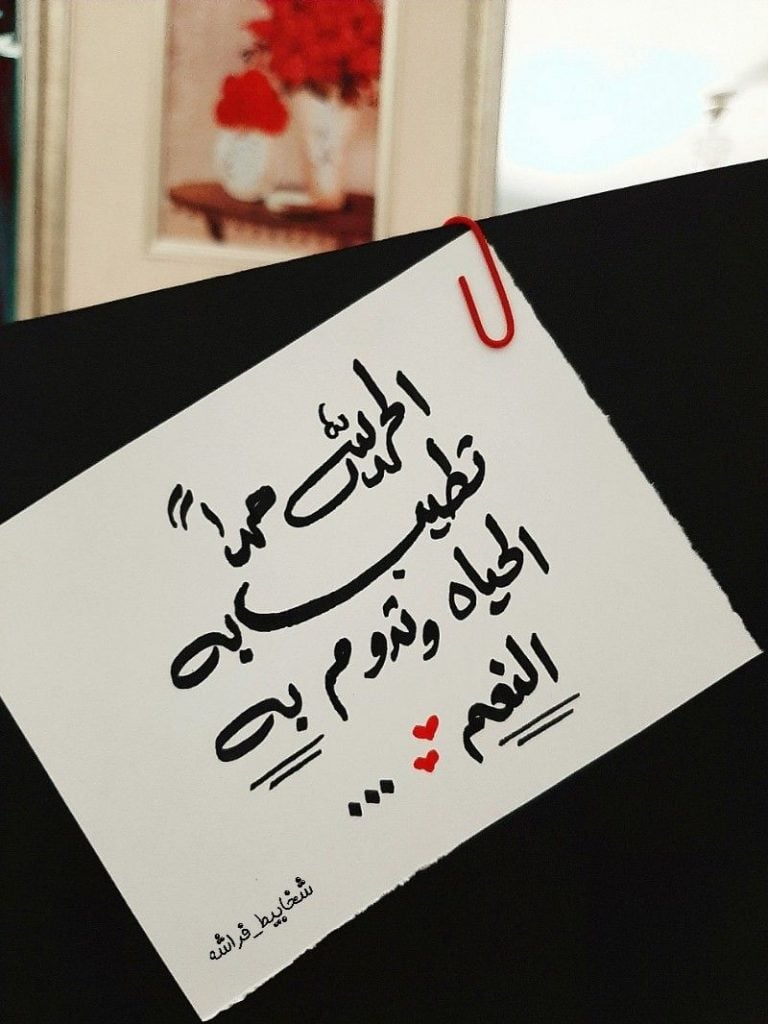 الحمدلله حمداً
تطيب به
الحياه وتدوم به
النعم
...
شخابيط_فراشه